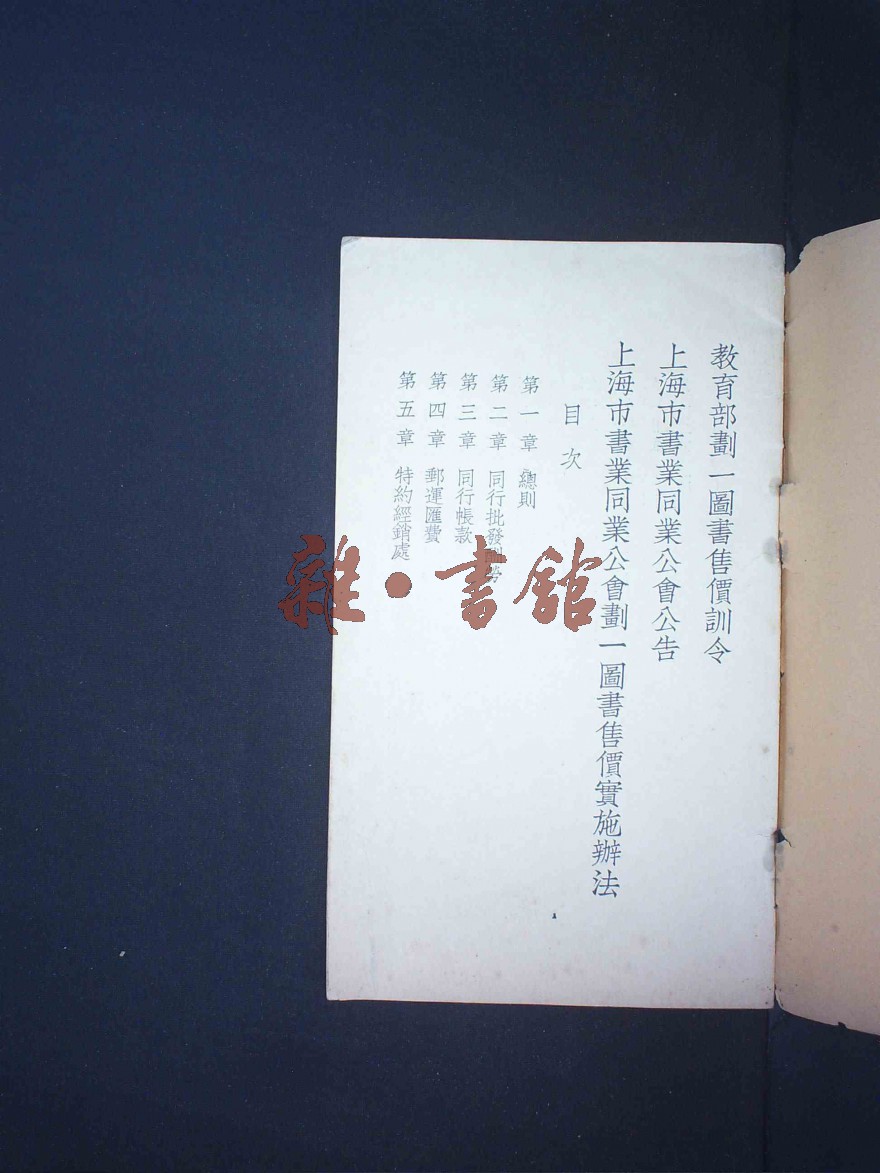 教育部劃一圖書售價訓令
上海市書業同業公會公告
上海市書業同業公會劃一圖書售價實施辦法
目次
第一章 總則
第二章 同行批發
第三章 同行帳款
第四章 郵運匯費
第五章 特約經銷處
雜·書館